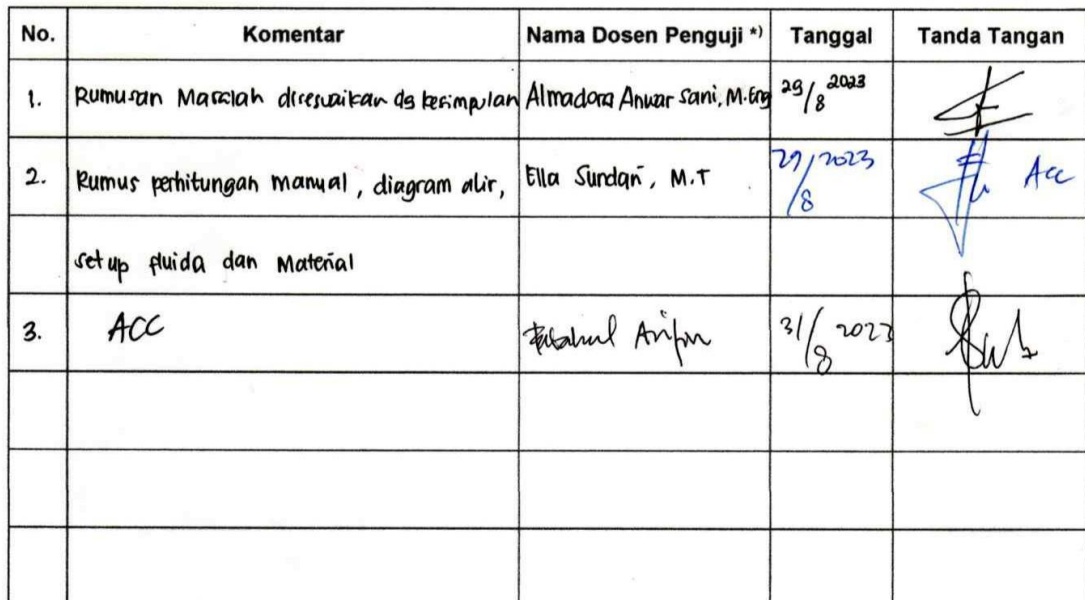 No. Komentar Nama Dosen Penguji *) Tanggal Tanda Tangan
1. Rumusan Masalah disesuaikan dg kesimpulan Almadora Anwar Sani, M.Eng 29/8 2023
2. Rumus perhitungan manual, diagram alir, Ella Sundari, M.T 29/8 2023 Acc
set up fluida dan Material
3. ACC Arifin 31/8 2023